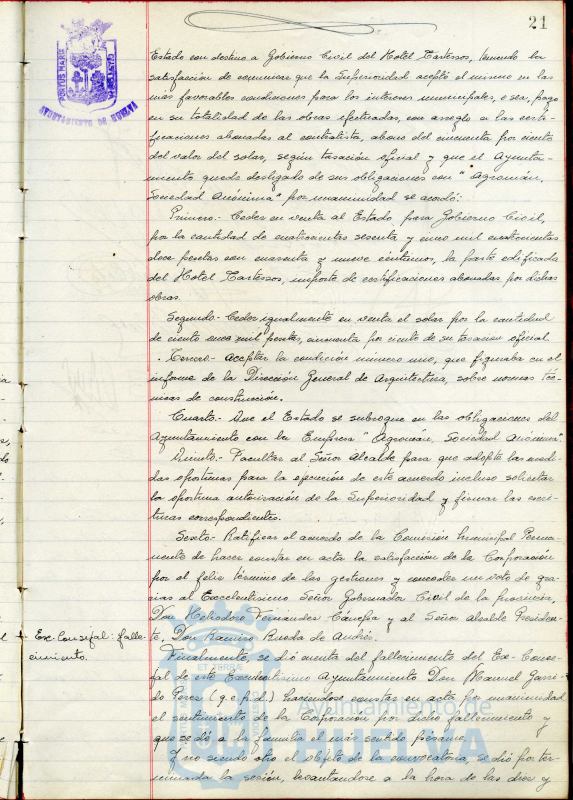 21
PORTUS MARIS
ET TERRÆ CUSTODIA
AYUNTAMIENTO DE HUELVA
Estado con destino a Gobierno Civil del Hotel Tartessos, teniendo la
satisfacción de comunicar que la Superioridad aceptó el mismo en las
más favorables condiciones para los intereses municipales, o sea, pago
en su totalidad de las obras efectuadas, con arreglo a las certi-
ficaciones abonadas al contratista, abono del cincuenta por ciento
del valor del solar, según tasación oficial y que el Ayunta-
miento quede desligado de sus obligaciones con "Agromán,
Sociedad Anónima" por unanimidad se acordó:
Primero.- Ceder en venta al Estado para Gobierno Civil,
por la cantidad de cuatrocientas sesenta y cinco mil cuatrocientas
doce pesetas con cuarenta y nueve céntimos, la parte edificada
del Hotel Tartessos, importe de certificaciones abonadas por dichas
obras.
Segundo.- Ceder igualmente en venta el solar por la cantidad
de ciento once mil pesetas, cincuenta por ciento de su tasación oficial.
Tercero.- Aceptar la condición número uno, que figuraba en el
informe de la Dirección General de Arquitectura, sobre normas téc-
nicas de construcción.
Cuarto.- Que el Estado se subrogue en las obligaciones del
Ayuntamiento con la Empresa "Agromán, Sociedad Anónima"
Quinto.- Facultar al Señor Alcalde para que adopte las medi-
das oportunas para la ejecución de este acuerdo incluso solicitar
la oportuna autorización de la Superioridad y firmar las escri-
turas correspondientes.
Sexto.- Ratificar el acuerdo de la Comisión Municipal Perma-
nente de hacer constar en acta la satisfacción de la Corporación
por el feliz término de las gestiones y conceder un voto de gra-
cias al Excelentísimo Señor Gobernador Civil de la provincia,
Don Heliodoro Fernández Cánepa y al Señor Alcalde Presiden-
te, Don Ramiro Rueda de Andrés.
Ex-Concejal: falle-
cimiento.
Finalmente, se dió cuenta del fallecimiento del Ex-Conce-
jal de este Excelentísimo Ayuntamiento Don Manuel Garri-
do Perez (q.e.p.d.) haciéndose constar en acta por unanimidad
el sentimiento de la Corporación por dicho fallecimiento y
que se dió a la familia el más sentido pésame.
Y no siendo otro el objeto de la convocatoria, se dió por ter-
minada la sesión, levantándose a la hora de las diez y
Ayuntamiento de
HUELVA